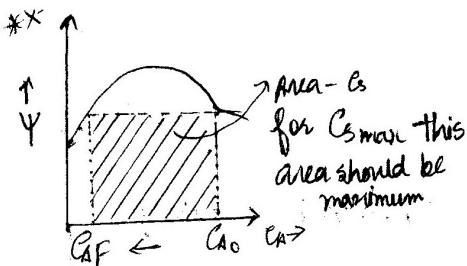 *x
ψ
Area - Cs
for Cs max this
area should be
maximum
CAF ← CAo CA→